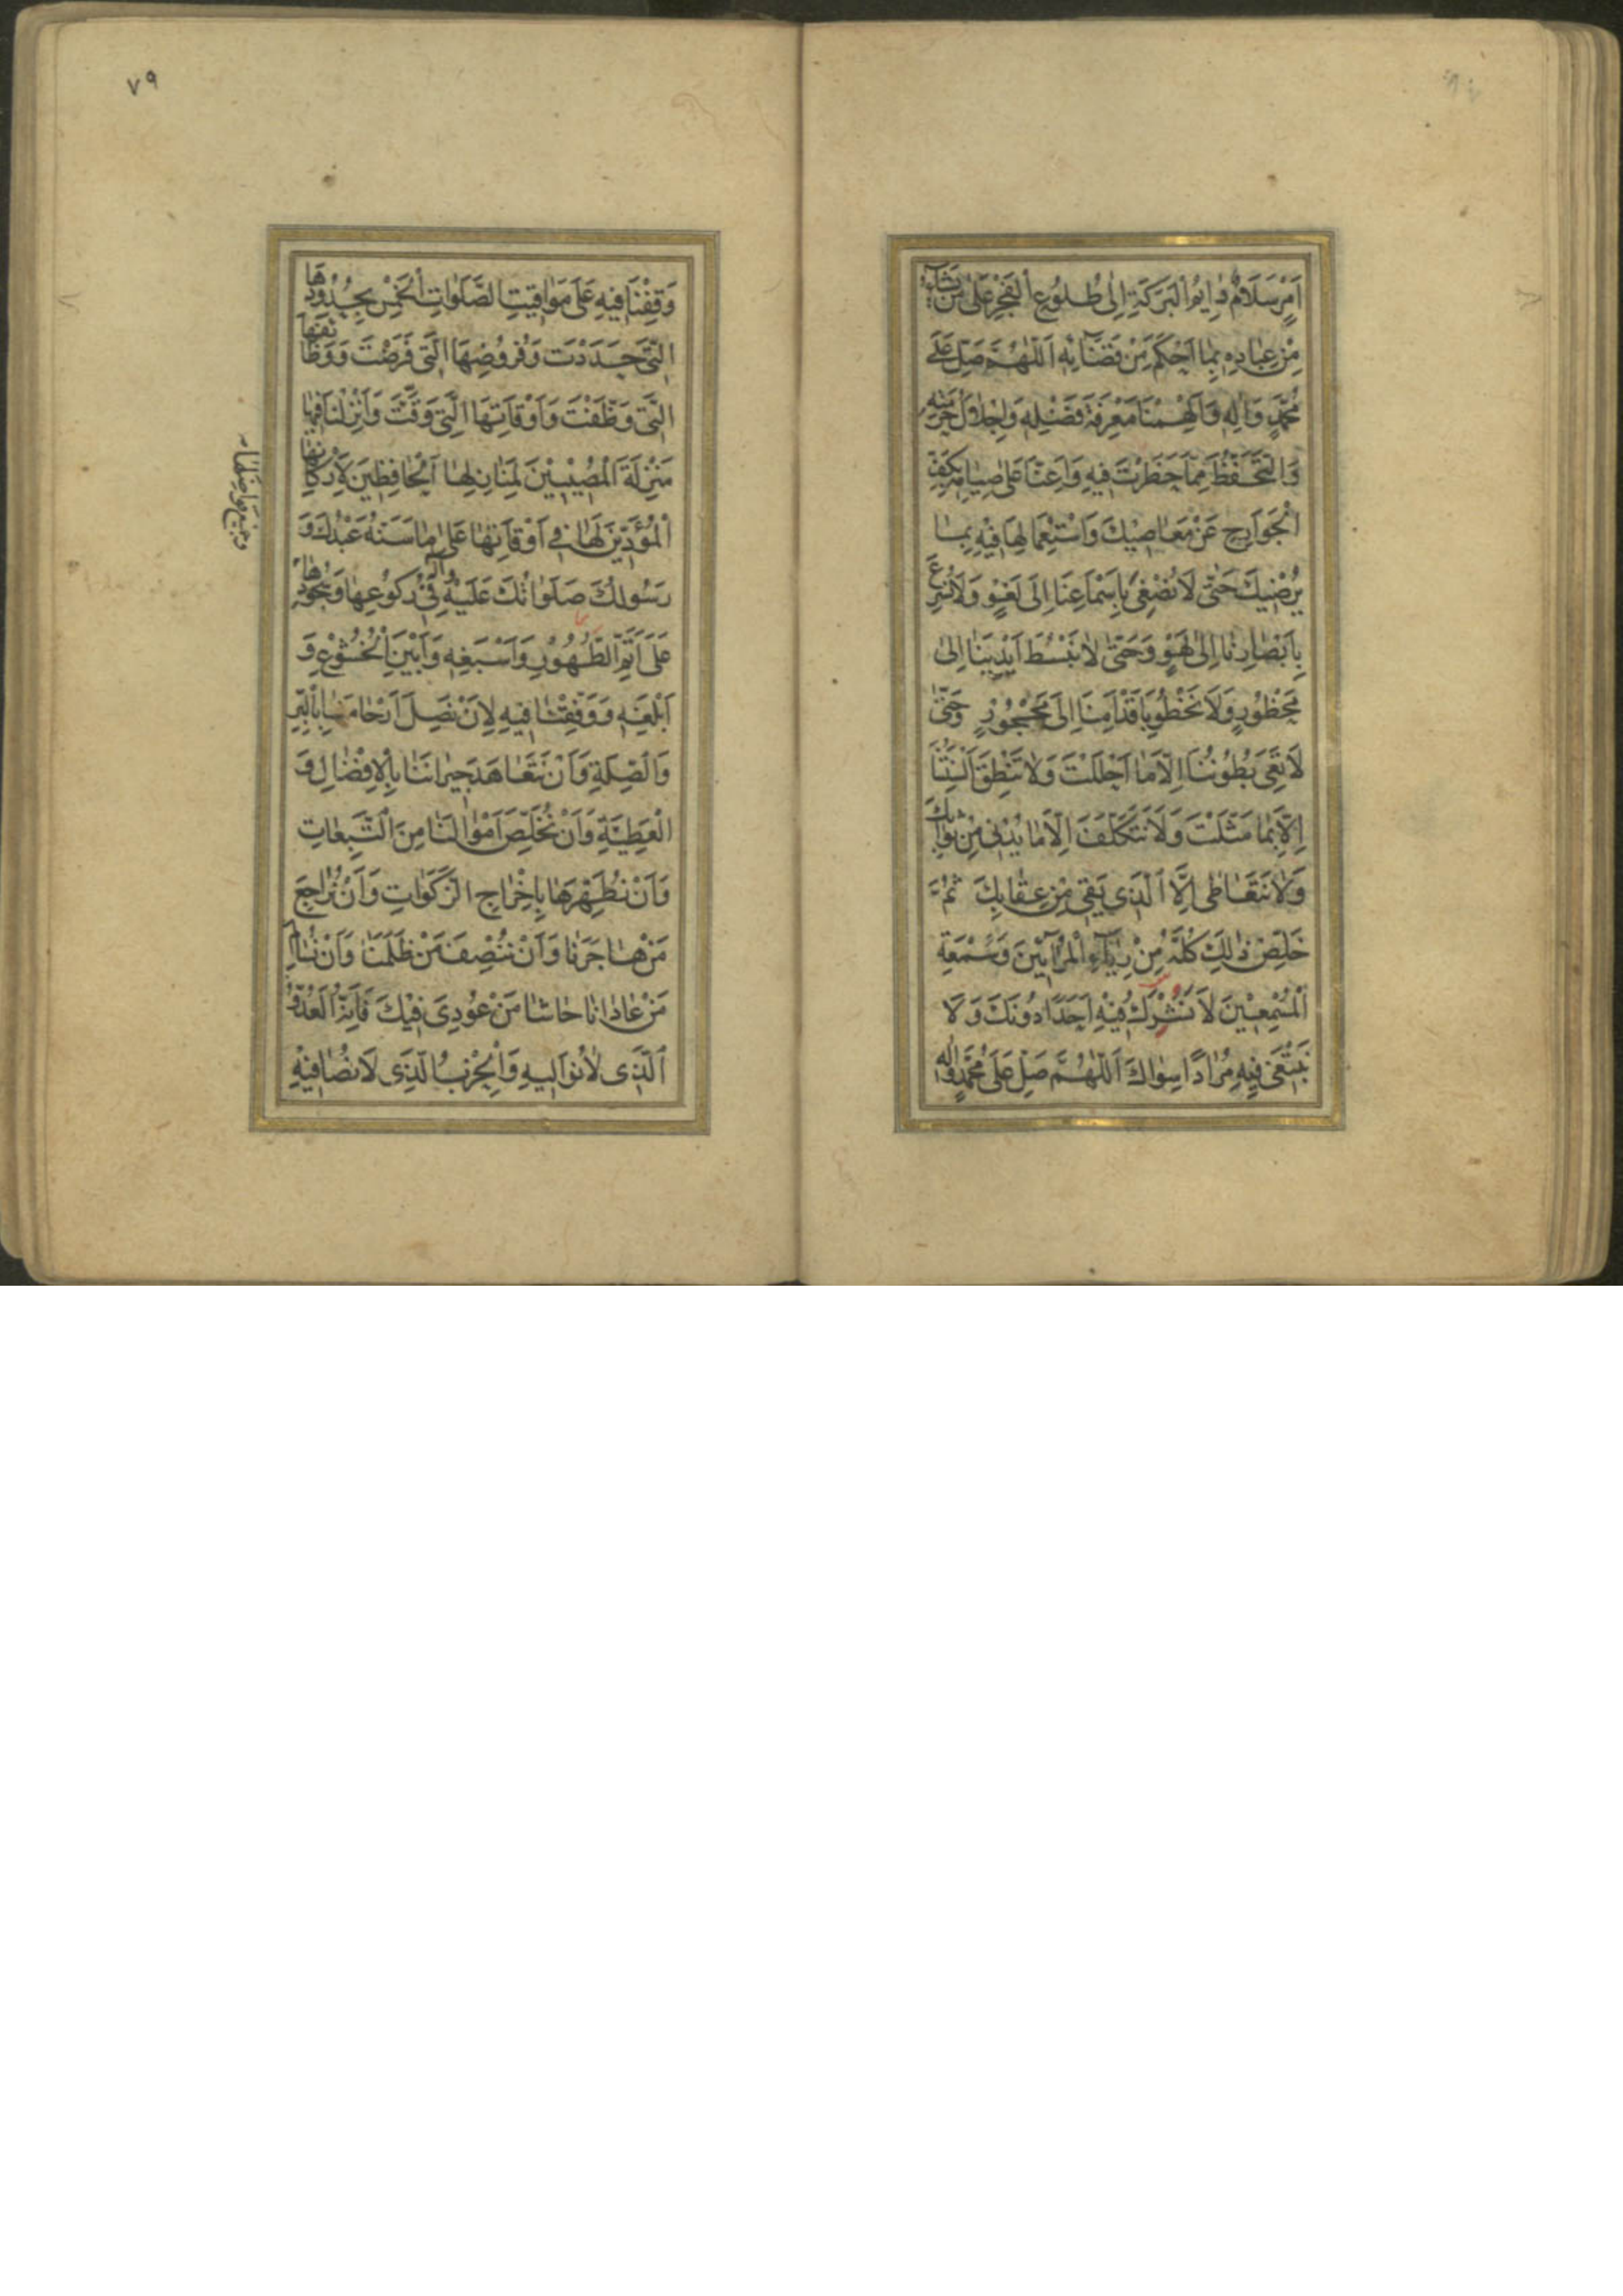 اَمْرٍ سَلَامٌ دٰايِمُ الْبَرَكَةِ اِلٰى طُلُوعِ الْفَجْرِ عَلٰى مَنْ يَشَآءُ
مِنْ عِبَادِهِ بِمٰا اَحْكَمَ مِنْ قَضَآئِهِ اَللّٰهُمَّ صَلِّ عَلٰى
مُحَمَّدٍ وَاٰلِهِ وَاَلْهِمْنَا مَعْرِفَةَ فَضْلِهِ وَاِجْلَالَ حُرْمَتِهِ
وَالتَّحَفُّظَ مِمَّا حَظَرْتَ فِيهِ وَاَعِنَّا عَلٰى صِيَامِهِ بِكَفِّ
الْجَوَارِحِ عَنْ مَعَاصِيكَ وَاسْتِعْمَالِهَا فِيهِ بِمٰا
يُرْضِيكَ حَتّٰى لَا نُصْغِىَ بِاَسْمَاعِنَا اِلٰى لَغْوٍ وَلَا نُسْرِعَ
بِاَبْصَارِنَا اِلٰى لَهْوٍ وَحَتّٰى لَا نَبْسُطَ اَيْدِيَنَا اِلٰى
مَحْظُورٍ وَلَا نَخْطُوَ بِاَقْدَامِنَا اِلٰى مَحْجُورٍ وَحَتّٰى
لَا تَعِىَ بُطُونُنَا اِلَّا مٰا اَحْلَلْتَ وَلَا تَنْطِقَ اَلْسِنَتُنَا
اِلَّا بِمٰا مَثَّلْتَ وَلَا نَتَكَلَّفَ اِلَّا مٰا يُدْنِى مِنْ ثَوَابِكَ
وَلَا نَتَعَاطٰى اِلَّا الَّذِى يَقِى مِنْ عِقَابِكَ ثُمَّ
خَلِّصْ ذٰلِكَ كُلَّهُ مِنْ رِيَآءِ الْمُرَآئِينَ وَسُمْعَةِ
الْمُسْمِعِينَ لَا نُشْرِكُ فِيهِ اَحَدًا دُونَكَ وَلَا
نَبْتَغِى فِيهِ مُرَادًا سِوَاكَ اَللّٰهُمَّ صَلِّ عَلٰى مُحَمَّدٍ وَاٰلِهِ
٧٩
وَقِفْنَا فِيهِ عَلٰى مَوَاقِيتِ الصَّلَوَاتِ الْخَمْسِ بِحُدُودِهَا
الَّتِى حَدَّدْتَ وَفُرُوضِهَا الَّتِى فَرَضْتَ وَوَظَائِفِهَا
الَّتِى وَظَّفْتَ وَاَوْقَاتِهَا الَّتِى وَقَّتَّ وَاَنْزِلْنَا فِيهَا
مَنْزِلَةَ الْمُصِيبِينَ لِمَنَازِلِهَا الْحَافِظِينَ لِاَرْكَانِهَا
الْمُؤَدِّينَ لَهَا فِى اَوْقَاتِهَا عَلٰى مٰا سَنَّهُ عَبْدُكَ وَ
رَسُولُكَ صَلَوَاتُكَ عَلَيْهِ وَاٰلِهِ فِى رُكُوعِهَا وَسُجُودِهَا
عَلٰى اَتَمِّ الطَّهُورِ وَاَسْبَغِهِ وَاَبْيَنِ الْخُشُوعِ وَ
اَبْلَغِهِ وَوَفِّقْنَا فِيهِ لِاَنْ نَصِلَ اَرْحَامَنَا بِالْبِرِّ
وَالصِّلَةِ وَاَنْ نَتَعَاهَدَ جِيرَانَنَا بِالْاِفْضَالِ وَ
الْعَطِيَّةِ وَاَنْ نُخَلِّصَ اَمْوَالَنَا مِنَ التَّبِعَاتِ
وَاَنْ نُطَهِّرَهَا بِاِخْرَاجِ الزَّكَوَاتِ وَاَنْ نُرَاجِعَ
مَنْ هَاجَرَنَا وَاَنْ نُنْصِفَ مَنْ ظَلَمَنَا وَاَنْ نُسَالِمَ
مَنْ عَادَانَا حَاشَا مَنْ عُودِىَ فِيكَ فَاِنَّهُ الْعَدُوُّ
الَّذِى لَا نُوَالِيهِ وَالْحِزْبُ الَّذِى لَا نُصَافِيهِ